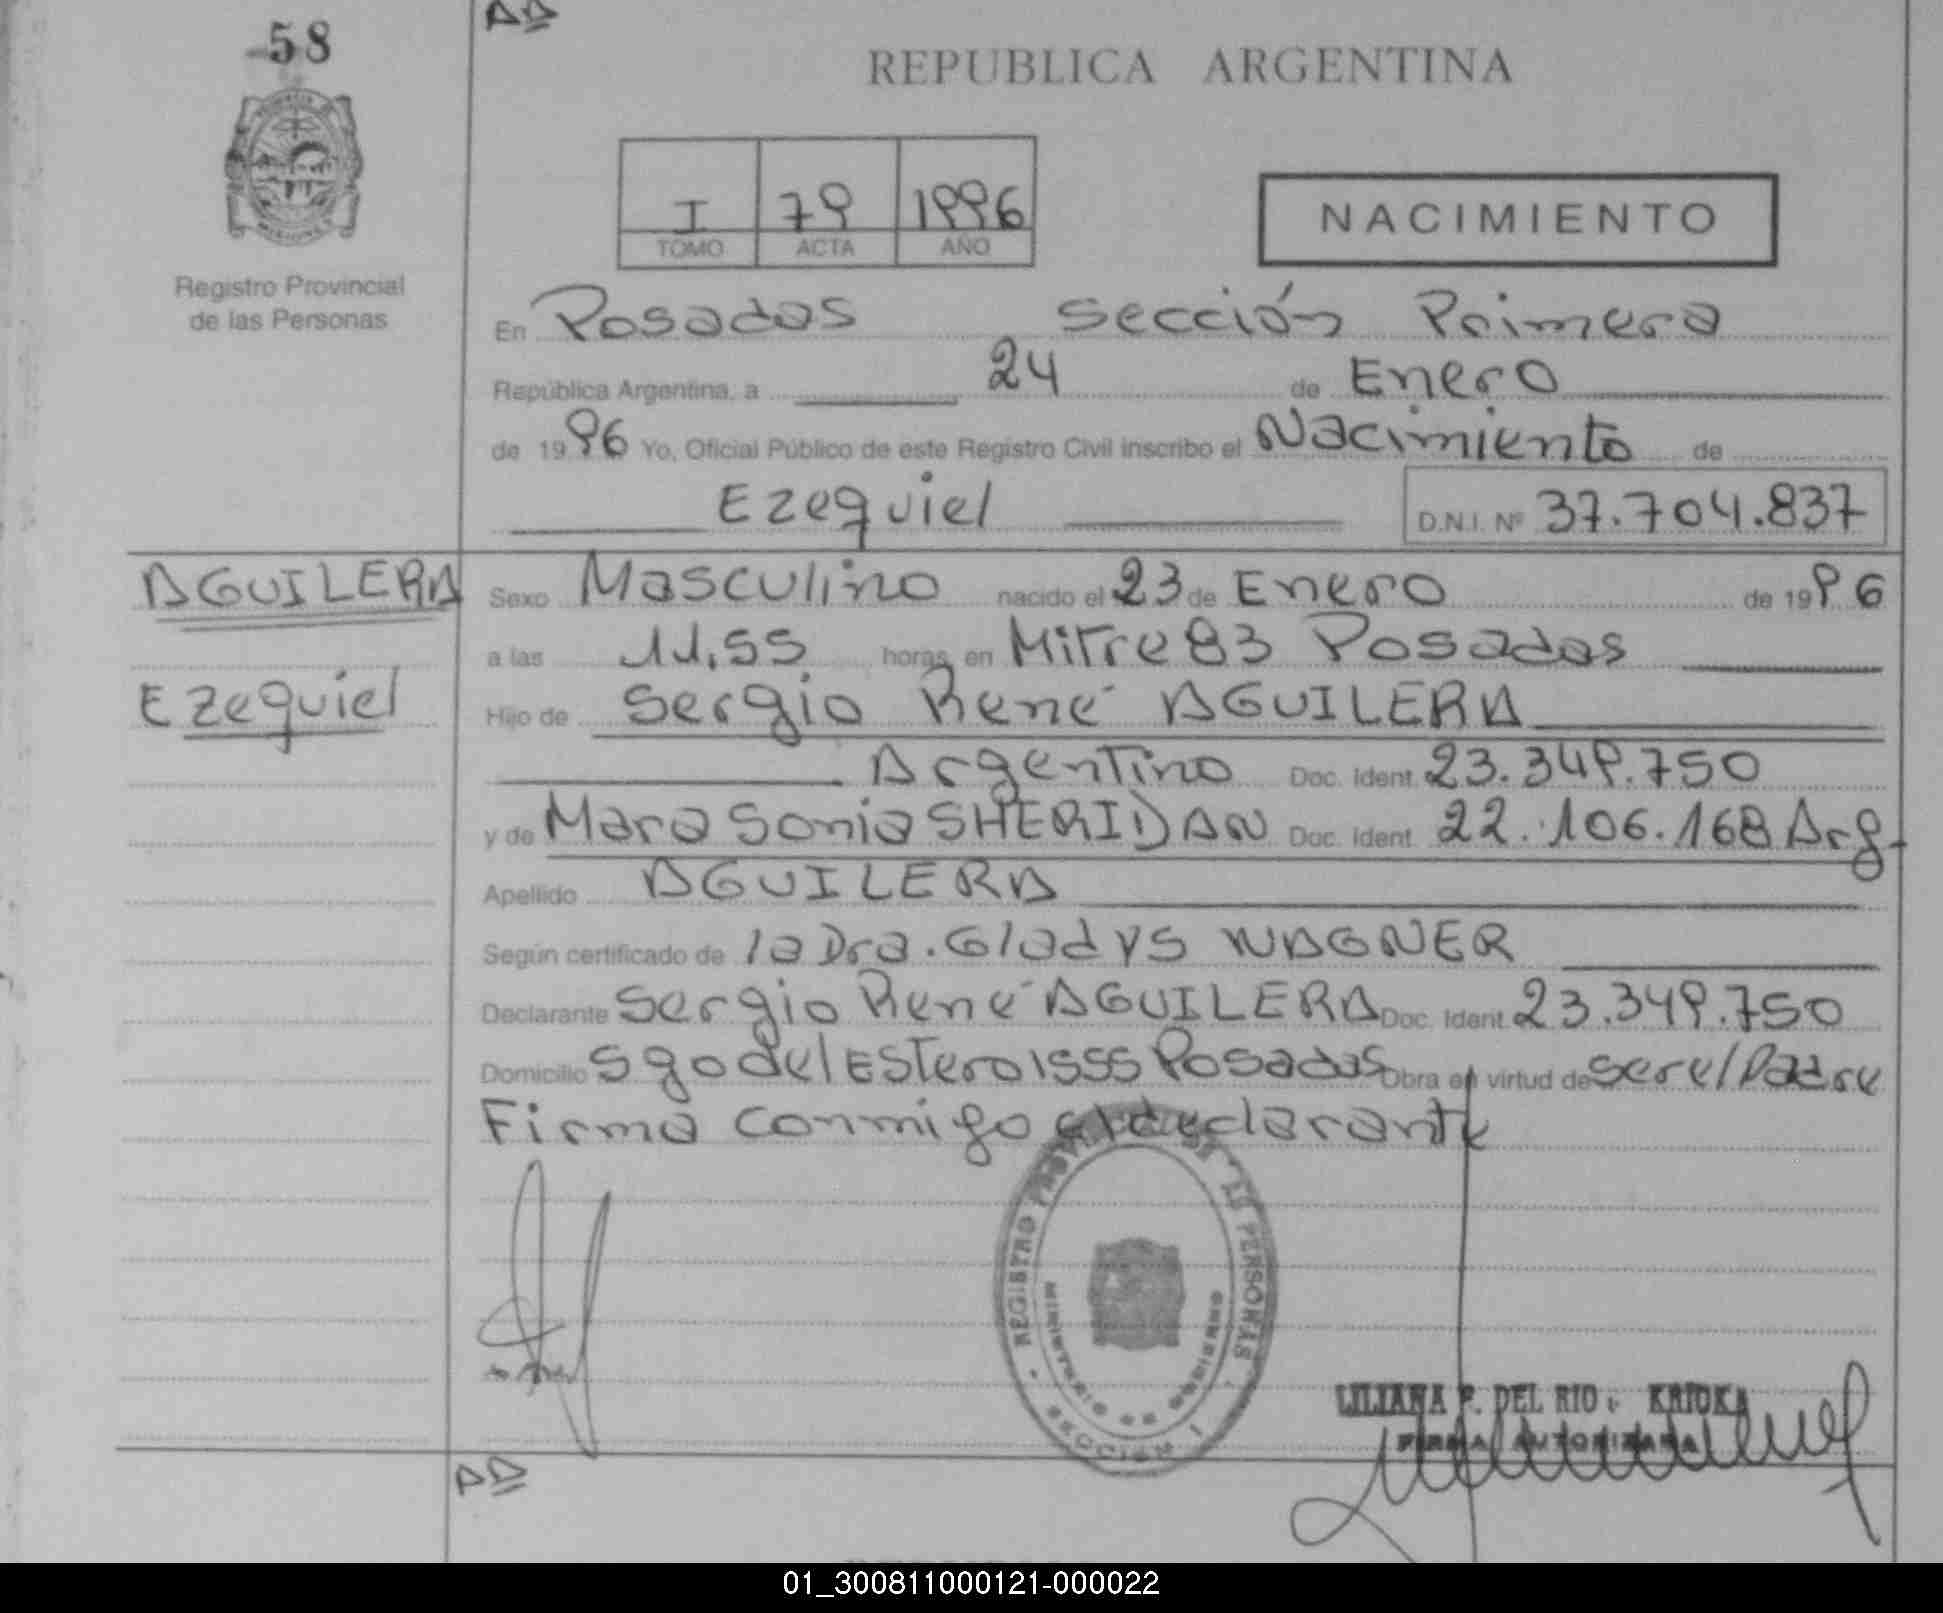 58
REPUBLICA ARGENTINA
I 79 1996
TOMO ACTA AÑO
NACIMIENTO
Registro Provincial
de las Personas
En Posadas Sección Primera
República Argentina, a 24 de Enero
de 1996 Yo, Oficial Público de este Registro Civil inscribo el Nacimiento de
Ezequiel D.N.I. Nº 37.704.837
AGUILERA
Ezequiel
Sexo Masculino nacido el 23 de Enero de 1996
a las 11,55 horas en Mitre 83 Posadas
Hijo de Sergio René AGUILERA
Argentino Doc. Ident. 23.349.750
y de Mara Sonia SHERIDAN Doc. Ident. 22.106.168 Arg.
Apellido AGUILERA
Según certificado de la Dra. Gladys WAGNER
Declarante Sergio René AGUILERA Doc. Ident. 23.349.750
Domicilio Sgo del Estero 1555 Posadas Obra en virtud de ser el Padre
Firma conmigo el declarante
REGISTRO PROVINCIAL DE LAS PERSONAS
MINISTERIO DE GOBIERNO
SECCION 1
LILIANA F. DEL RIO
FIRMA AUTORIZADA
01_300811000121-000022